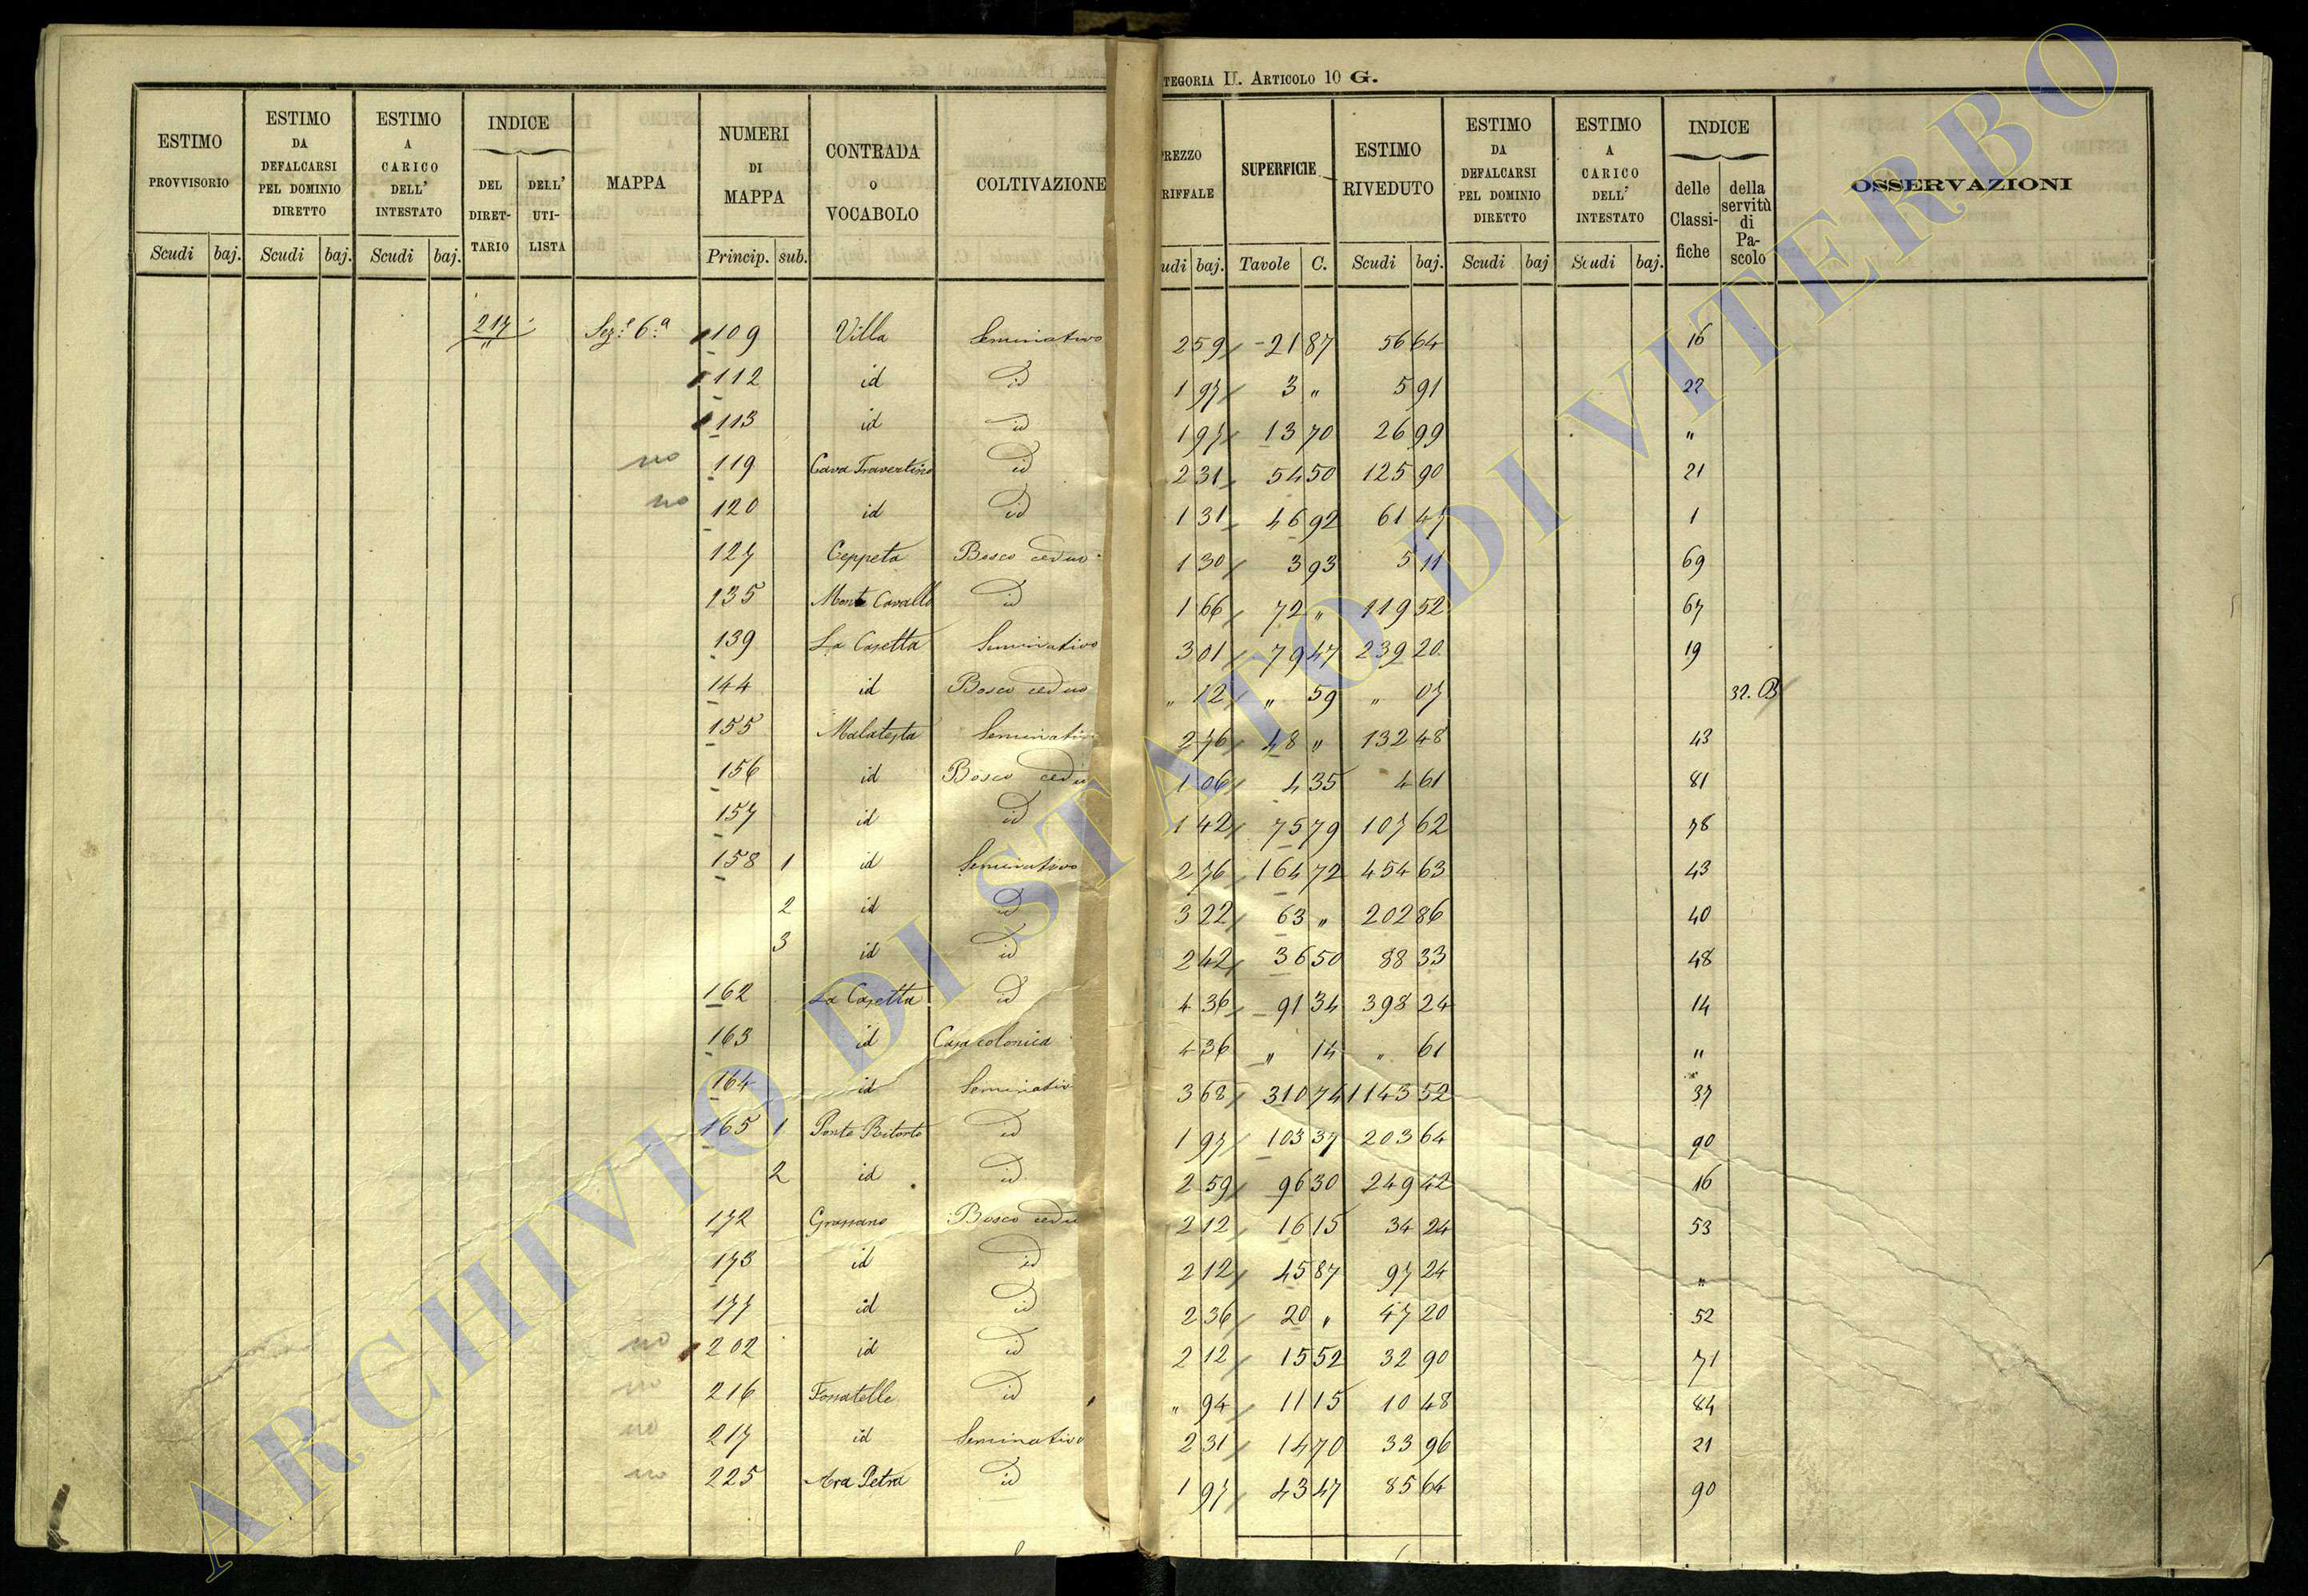 TEGORIA II. ARTICOLO 10 G.
ESTIMO PROVVISORIO | ESTIMO DA DEFALCARSI PEL DOMINIO DIRETTO | ESTIMO A CARICO DELL' INTESTATO | INDICE DEL DIRETTARIO | DELL' UTILISTA | MAPPA | NUMERI DI MAPPA | CONTRADA O VOCABOLO | COLTIVAZIONE | REZZO RIFFALE | SUPERFICIE | ESTIMO RIVEDUTO | ESTIMO DA DEFALCARSI PEL DOMINIO DIRETTO | ESTIMO A CARICO DELL' INTESTATO | INDICE delle Classifiche | della servitù di Pascolo | OSSERVAZIONI
Scudi | baj. | Scudi | baj. | Scudi | baj. | Princip. | sub. | udi | baj. | Tavole | C. | Scudi | baj. | Scudi | baj | Scudi | baj.
217 | Sez.e 6.a | 109 | Villa | Seminativo | 2 59 | 21 87 | 56 64 | 16
112 | id | id | 1 97 | 3 " | 5 91 | 22
113 | id | id | 1 97 | 13 70 | 26 99 | "
no | 119 | Cava Travertino | id | 2 31 | 54 50 | 125 90 | 21
no | 120 | id | id | 1 31 | 46 92 | 61 47 | 1
127 | Ceppeta | Bosco ceduo | 1 30 | 3 93 | 5 11 | 69
135 | Monte Cavallo | id | 1 66 | 72 " | 119 52 | 67
139 | La Casetta | Seminativo | 3 01 | 79 47 | 239 20 | 19
144 | id | Bosco ceduo | " 12 | " 59 | " 07 | 32. B
155 | Malatesta | Seminativ | 2 76 | 48 " | 132 48 | 43
156 | id | Bosco cedu | 1 06 | 4 35 | 4 61 | 81
157 | id | id | 1 42 | 75 79 | 107 62 | 78
158 | 1 | id | Seminativo | 2 76 | 164 72 | 454 63 | 43
2 | id | id | 3 22 | 63 " | 202 86 | 40
3 | id | id | 2 42 | 36 50 | 88 33 | 48
162 | La Casetta | id | 4 36 | 91 34 | 398 24 | 14
163 | id | Casa colonica | 4 36 | " 14 | " 61 | "
164 | id | Seminativ | 3 68 | 310 74 | 1143 52 | 37
165 | 1 | Ponte Ritorto | id | 1 97 | 103 37 | 203 64 | 90
2 | id | id | 2 59 | 96 30 | 249 42 | 16
172 | Grassano | Bosco cedu | 2 12 | 16 15 | 34 24 | 53
173 | id | id | 2 12 | 45 87 | 97 24 | "
177 | id | id | 2 36 | 20 " | 47 20 | 52
no | 202 | id | id | 2 12 | 15 52 | 32 90 | 71
no | 216 | Fossatelle | id | " 94 | 11 15 | 10 48 | 84
no | 217 | id | Seminativo | 2 31 | 14 70 | 33 96 | 21
no | 225 | Ara Petra | id | 1 97 | 43 47 | 85 64 | 90
ARCHIVIO DI STATO DI VITERBO